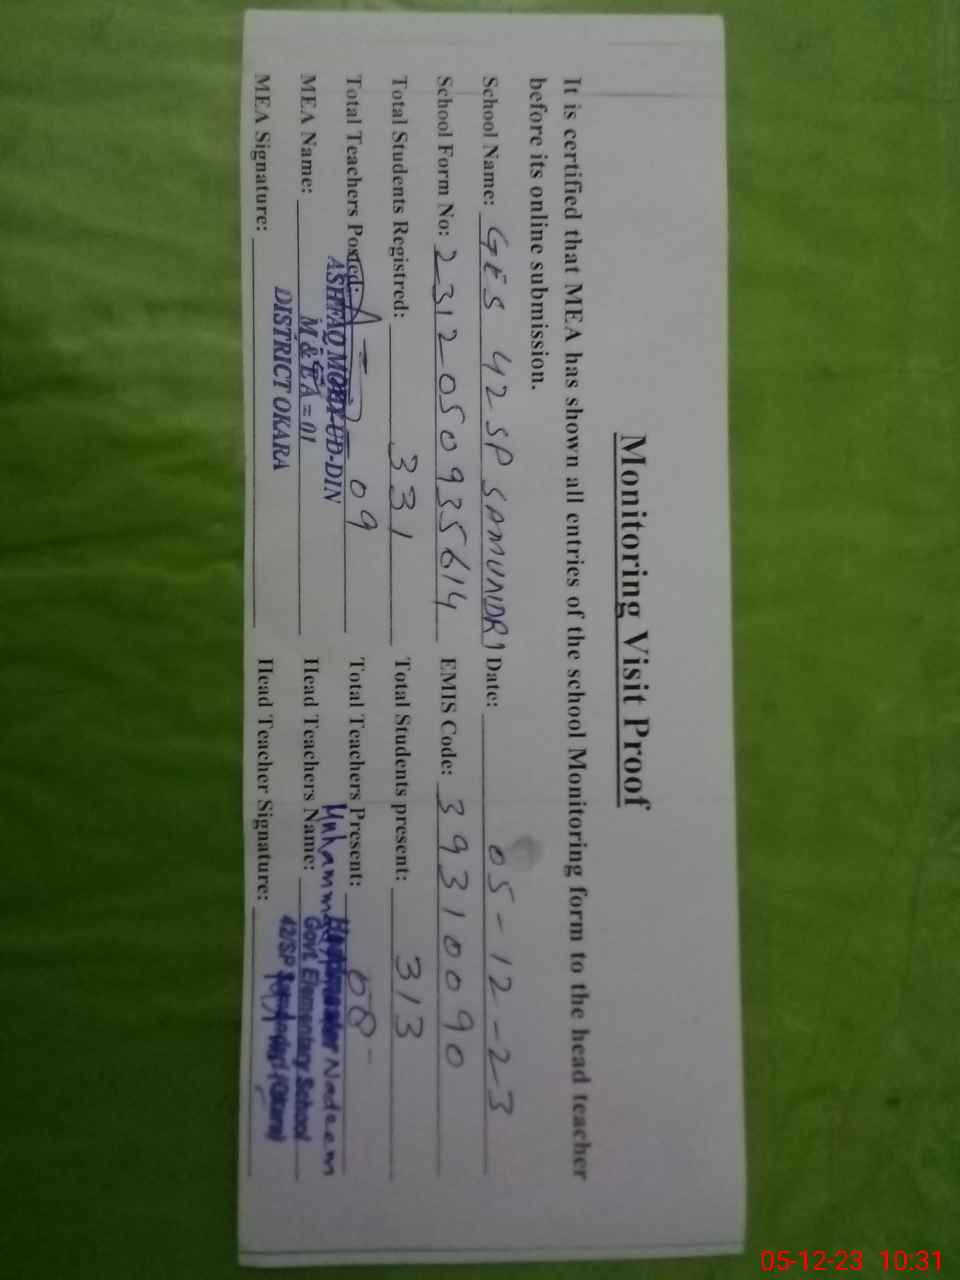 Monitoring Visit Proof
It is certified that MEA has shown all entries of the school Monitoring form to the head teacher
before its online submission.
School Name: GES 42 SP SAMUNDRI Date: 05-12-23
School Form No: 2312050935614 EMIS Code: 39310090
Total Students Registred: 331 Total Students present: 313
Total Teachers Posted: 09 Total Teachers Present: 08
MEA Name: ASHFAQ MOHY-UD-DIN Head Teachers Name: Muhammad Nadeem
M & E A = 01 Govt. Elementary School
MEA Signature: DISTRICT OKARA Head Teacher Signature: 42/SP (Okara)
05-12-23 10:31